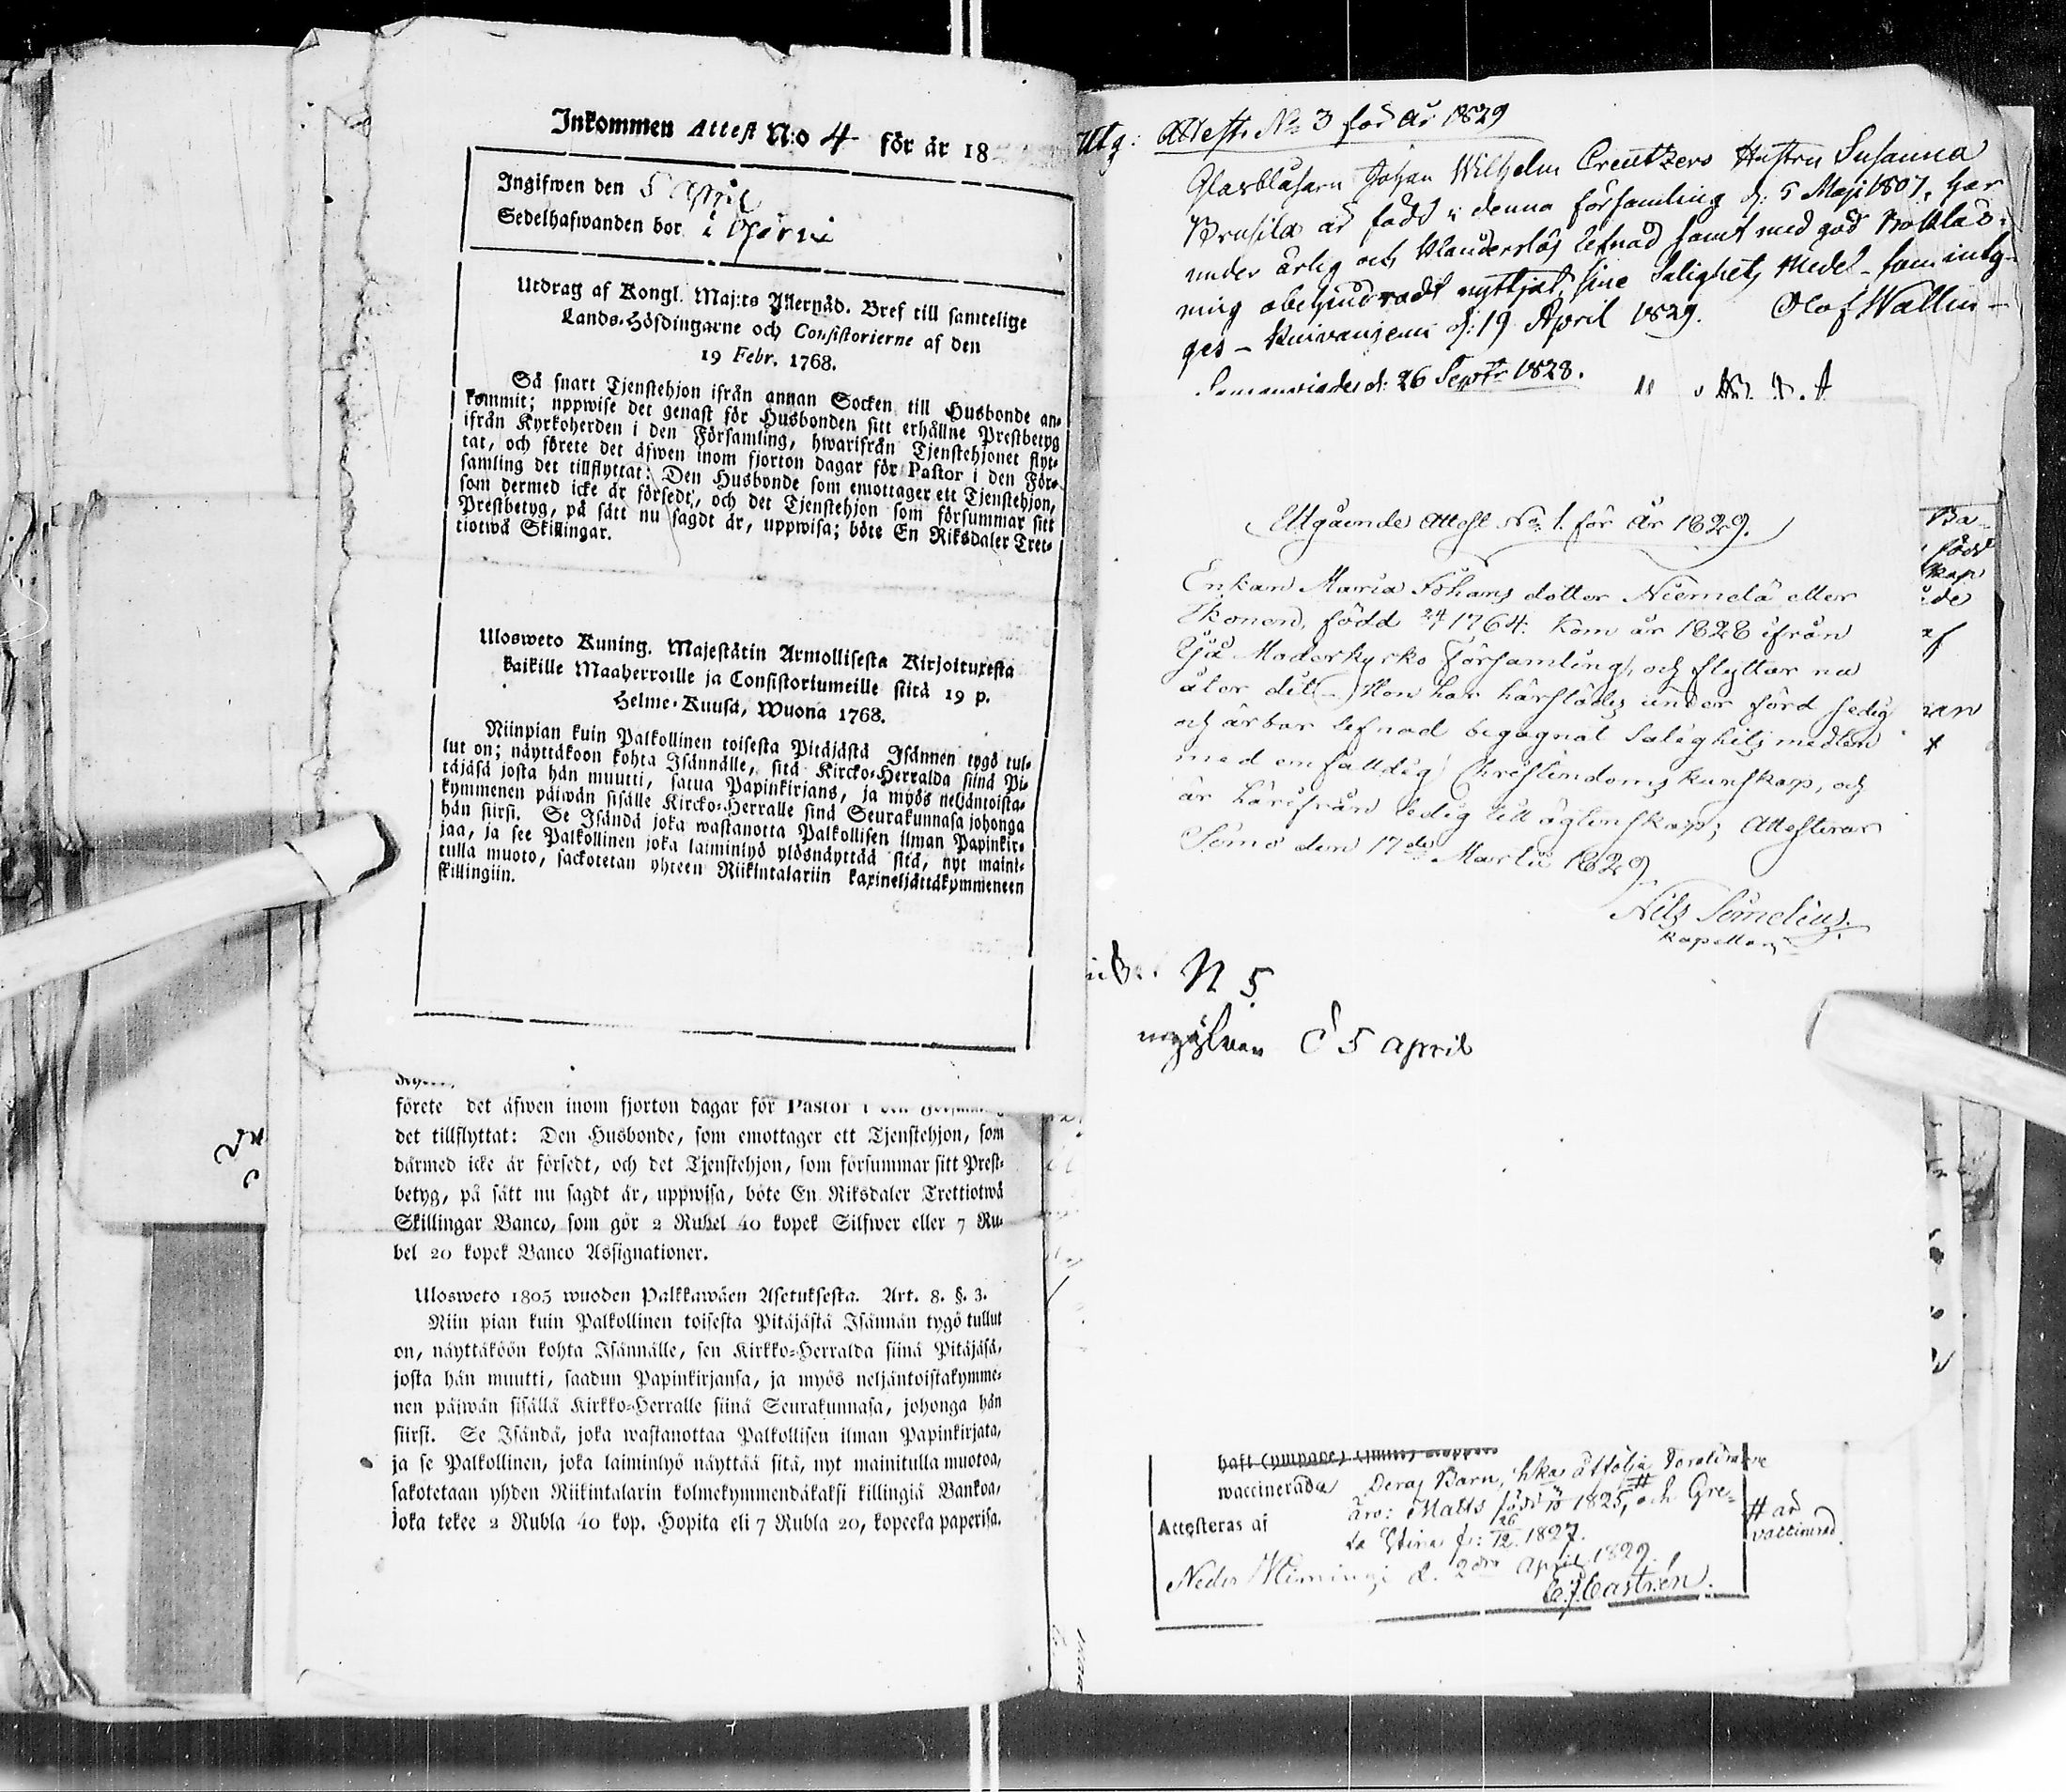 Inkommen Attest N:o 4 för år 18
Ingifwen den 5 April
Sedelhafwanden bor i
Utdrag af Kongl. Maj:ts Allernåd. Bref till samtelige
Lands-Höfdingarne och Consistorierne af den
19 Febr. 1768.
Så snart Tjenstehjon ifrån annan Socken till Husbonde an-
kommit; uppwise det genast för Husbonden sitt erhållne Prestbetyg
ifrån Kyrkoherden i den Församling, hwarifrån Tjenstehjonet flyt-
tat, och förete det äfwen inom fjorton dagar för Pastor i den För-
samling det tillflyttat: Den Husbonde som emottager ett Tjenstehjon,
som dermed icke är försedt, och det Tjenstehjon som försummar sitt
Prestbetyg, på sätt nu sagdt är, uppwisa; böte En Riksdaler Tret-
tiotwå Skillingar.
Ulosweto Kuning. Majestätin Armollisesta Kirjoituxesta
kaikille Maaherroille ja Consistoriumeille siitä 19 p.
Helme-Kuusa, Wuona 1768.
Niinpian kuin Palkollinen toisesta Pitäjästä Isännen tygö tul-
lut on; näyttäkoon kohta Isännälle, sitä Kircko-Herralda siinä Pi-
täjäsä josta hän muutti, satua Papinkirjans, ja myös neljäntoista-
kymmenen päiwän sisälle Kircko-Herralle sinä Seurakunnasa johonga
hän siirsi. Se Isändä joka wastanotta Palkollisen ilman Papinkir-
jaa, ja see Palkollinen joka laiminlyö ylösnäyttää sitä, nyt maini-
tulla muoto, sackotetan yhteen Riikintalariin kaxineljättäkymmeneen
skillingiin.
förete det äfwen inom fjorton dagar för Pastor i
det tillflyttat: Den Husbonde, som emottager ett Tjenstehjon, som
därmed icke är försedt, och det Tjenstehjon, som försummar sitt Prest-
betyg, på sätt nu sagdt är, uppwisa, böte En Riksdaler Trettiotwå
Skillingar Banco, som gör 2 Rubel 40 kopek Silfwer eller 7 Ru-
bel 20 kopek Banco Assignationer.
Ulosweto 1805 wuoden Palkkawäen Asetuksesta. Art. 8. §. 3.
Niin pian kuin Palkollinen toisesta Pitäjästä Isännän tygö tullut
on, näyttäköön kohta Isännälle, sen Kirkko-Herralda siinä Pitäjäsä,
josta hän muutti, saadun Papinkirjansa, ja myös neljäntoistakymme-
nen päiwän sisällä Kirkko-Herralle siinä Seurakunnasa, johonga hän
siirsi. Se Isändä, joka wastanottaa Palkollisen ilman Papinkirjata,
ja se Palkollinen, joka laiminlyö näyttää sitä, nyt mainitulla muotoa,
sakotetaan yhden Riikintalarin kolmekymmendäkaksi killingiä Bankoa,
joka tekee 2 Rubla 40 kop. Hopita eli 7 Rubla 20, kopeeka paperisa.
Utg: Attest. No 3 för år 1829
Glasblåsaren Johan Wilhelm Creutzers Hustru Susanna
Brusila är född i denna församling d: 5 Maji 1807, har
under ärlig och klanderslös lefnad samt med god Bokläs-
ning obehindradt nyttjat sine Salighets Medel - som intyg-
gas - Kuivaniemi d: 19 April 1829. Olof Wallin
d: 26 Septr 1828.
Utgående Attest No 1. för år 1829.
Enkan Maria Johans dotter Niemelä eller
Ikonen, född 24/7 1764. Kom år 1828 ifrån
Ijå Moderkyrko Församling, och flyttar nu
åter dit - Hon har härstädes under förd sedig
och ärbar lefnad begagnat Salighets medlen
med enfalldig Christendoms kunskap, och
är härifrån ledig till ägtenskap; Attesterar
Simo den 17de Martii 1829
Nils Simelius.
Kapellan
N 5
d 5 april
waccinerade Deras Barn, hka åtfölja Föräldrarne
äro: Matts född 1825, # och Gre-
Attesteras af
ta Stina f: 26/12 1827.
# är
vaccinerad
Neder Kiminge d. 2dra April 1829.
C. J. Castrén.